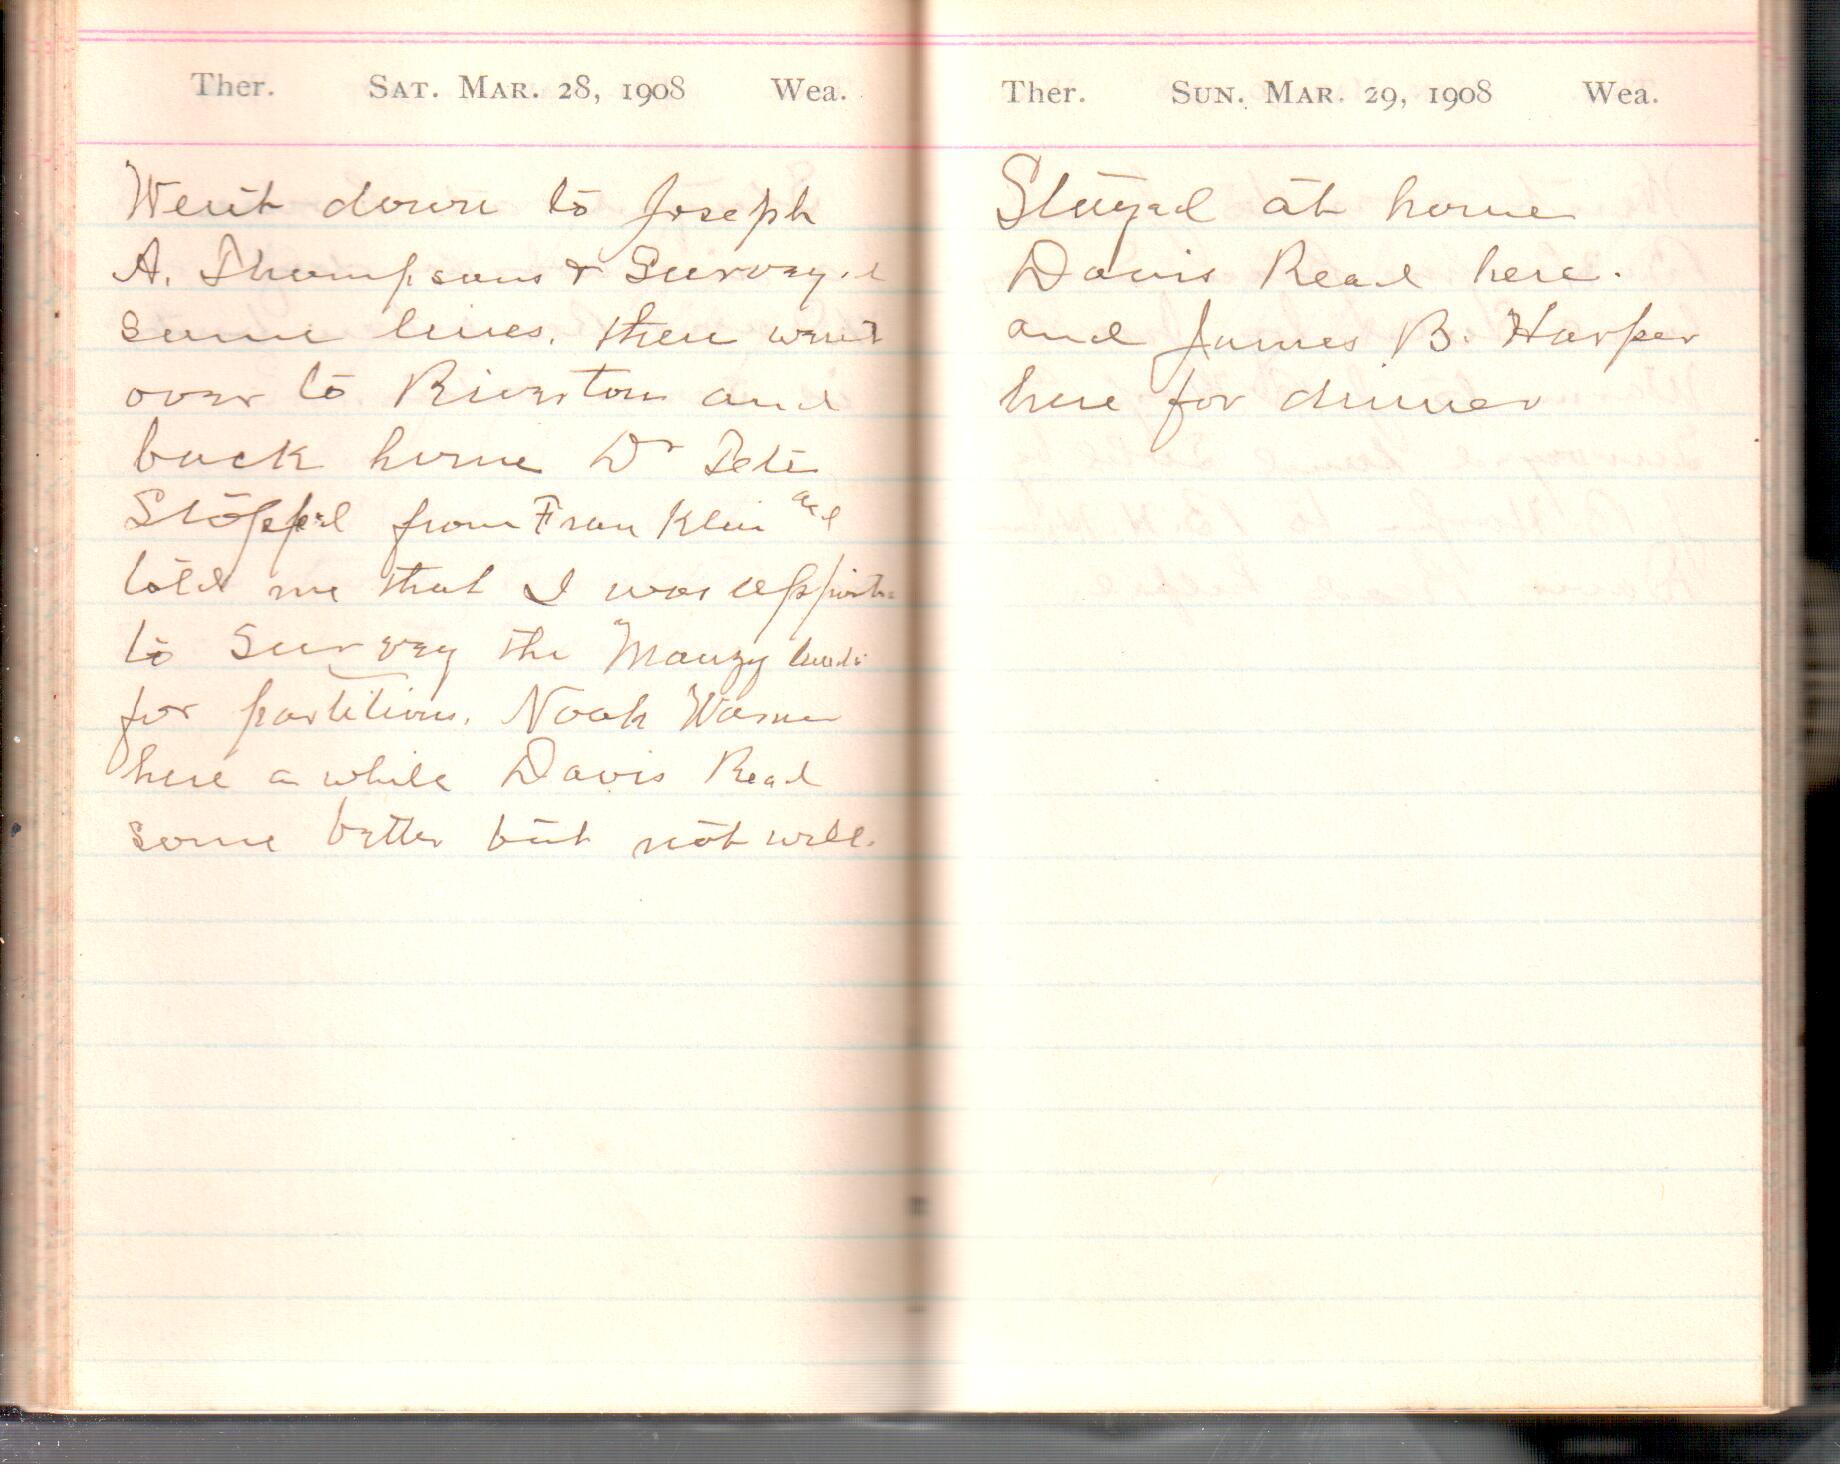 Ther. SAT. MAR. 28, 1908 Wea.
Went down to Joseph
A. Thompsons & Survayed
some lines. then went
over to Riverton and
back home Dr
Stopped from Franklin and
told me that I was
to Survey the Mauzy lands
for partitions. Noah Warner
here a while Davis Read
some better but not well.
Ther. SUN. MAR. 29, 1908 Wea.
Stayed at home
Davis Read here.
and James B. Harper
here for dinner